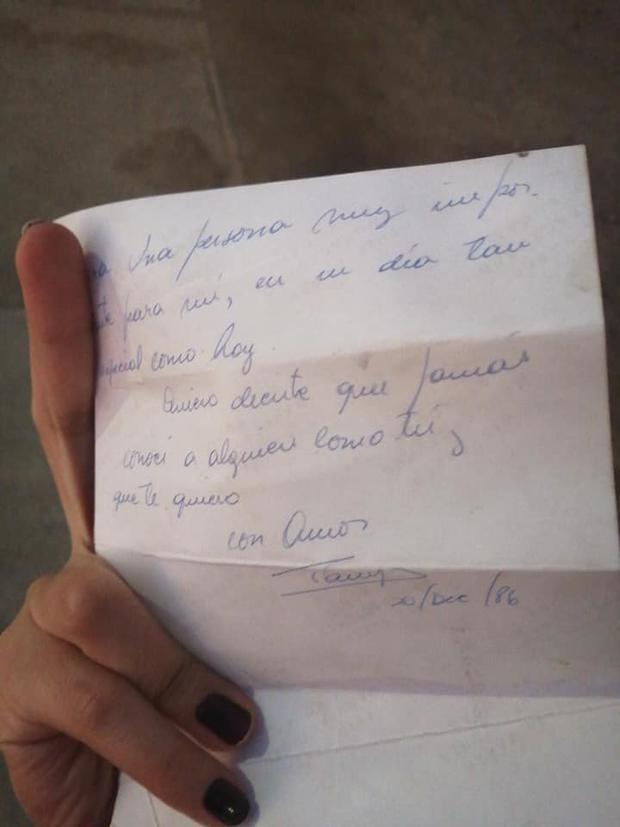 una persona muy impor-
para mí, en un día tan
especial como hoy.
Quiero decirte que jamás
conocí a alguien como tú y
que te quiero
con Amor
20/Dec/86